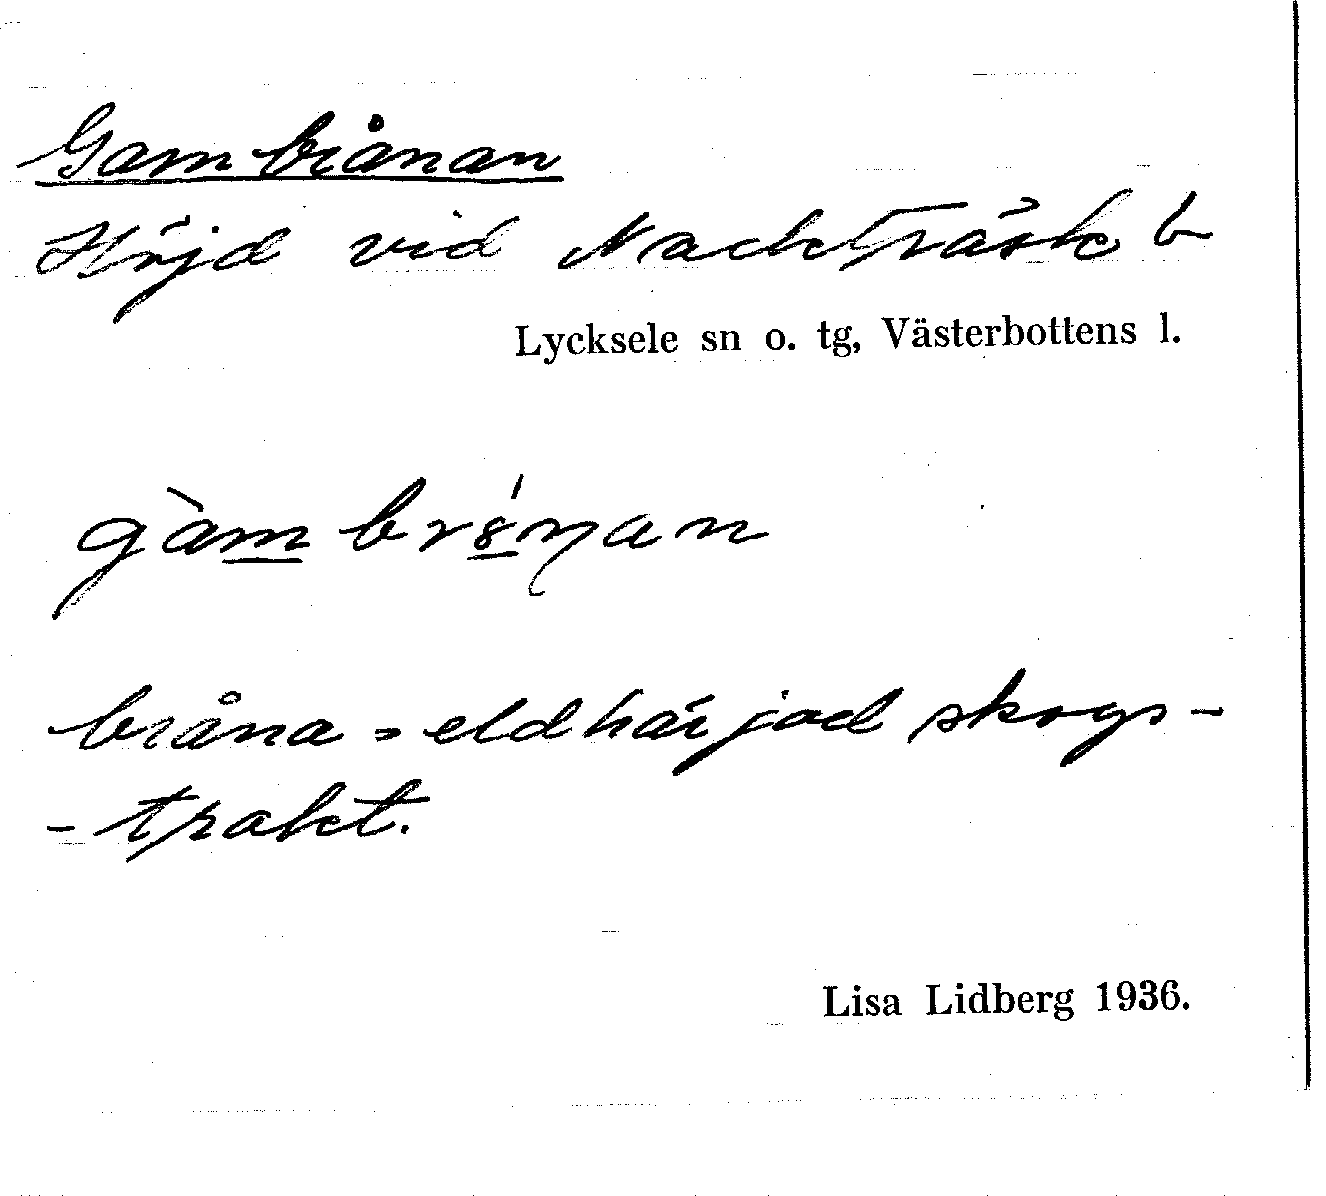 Gambrånan
Höjd vid Nackträsk b
Lycksele sn o. tg, Västerbottens l.
gàmbrś̲ŋan
bråna = eldhärjad skogs-
-trakt.
Lisa Lidberg 1936.